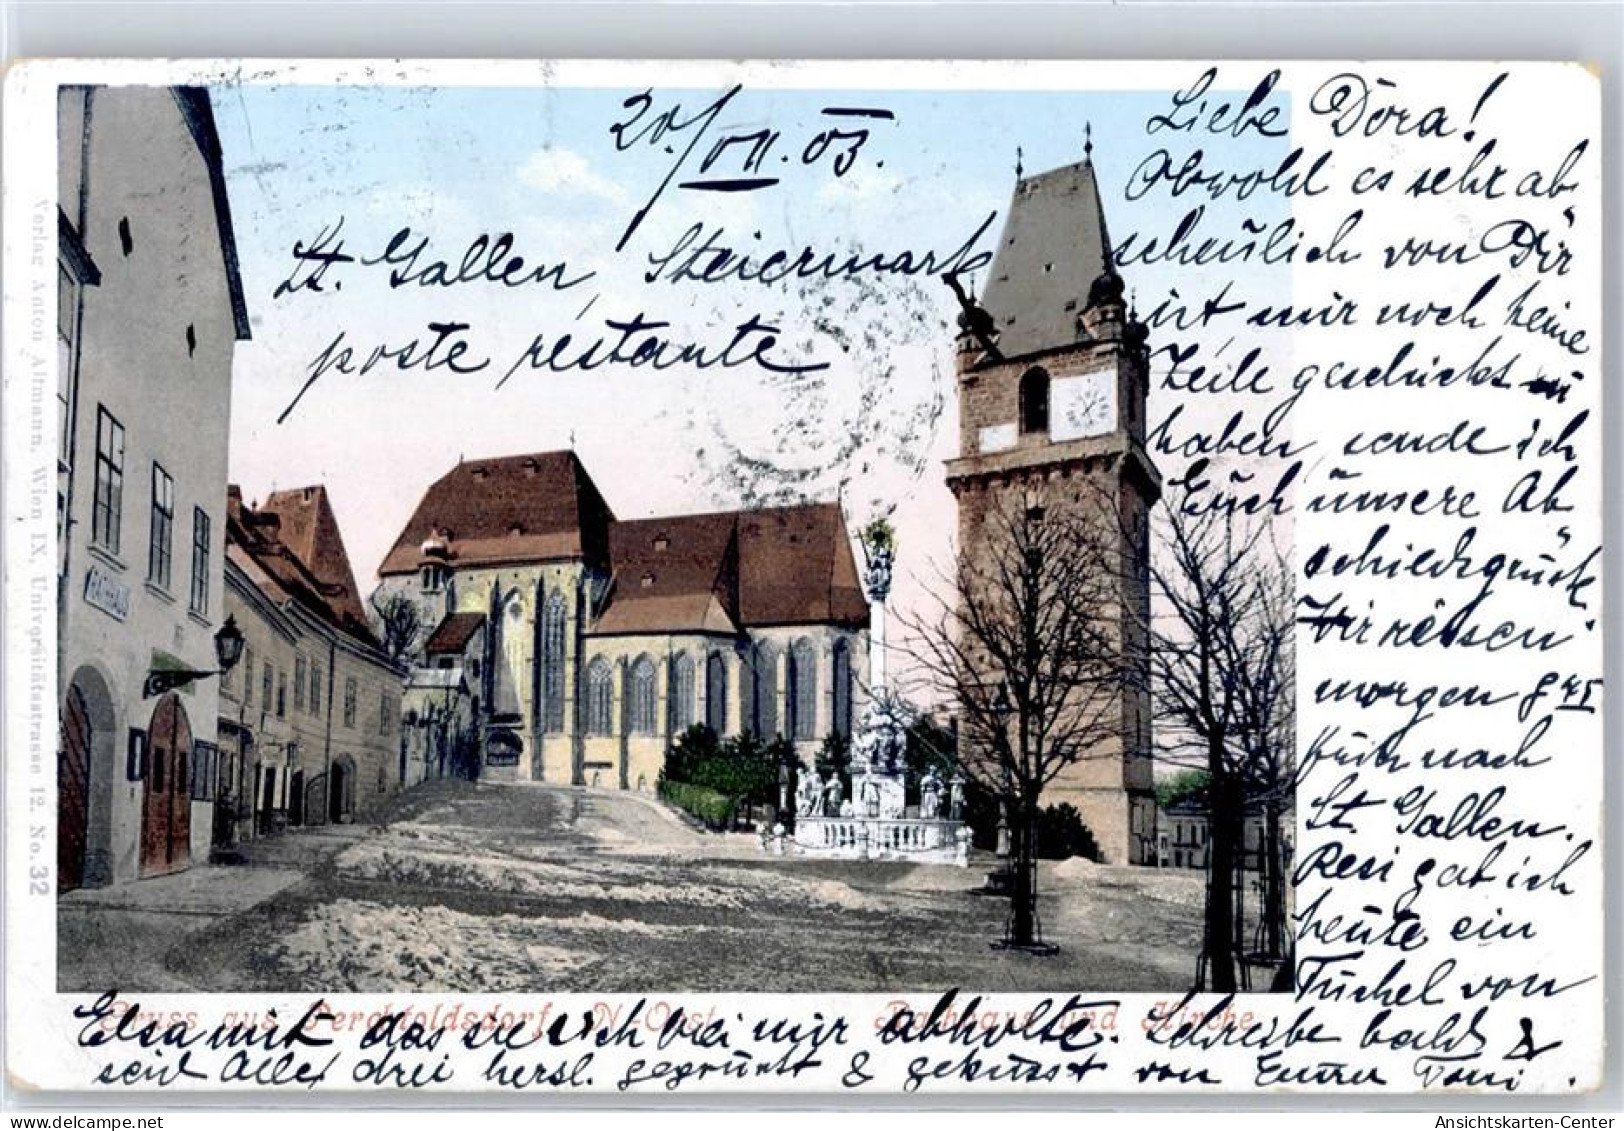 20./VII. 03.
St. Gallen, Steiermark
poste restante
Liebe Dora!
Obwohl es sehr ab-
scheulich von Dir
ist mir noch keine
Zeile geschickt zu
haben, sende ich
Euch unsere Ab-
schiedsgrüsse.
Wir reisen
morgen 8 45
früh nach
St. Gallen.
Resi gab ich
heute ein
Tüchel von
Elsa mit das sie sich bei mir abholte. Schreibe bald &
seid Alle drei herzl. gegrüsst & geküsst von Eurer Toni.
Gruss aus Perchtoldsdorf, N.-Oest. Rathhaus und Kirche.
RATHHAUS
Verlag Anton Altmann, Wien IX, Universitätsstrasse 12. No. 32
Ansichtskarten-Center